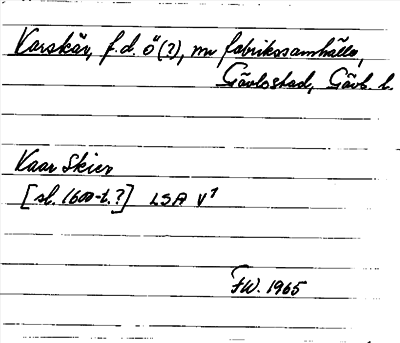 Karskär, f.d. ö (?), nu fabrikssamhälle,
Gävle stad, Gävl. l.
Kaar Skier
[sl. 1600-t.?] LSA V¹
FW. 1965